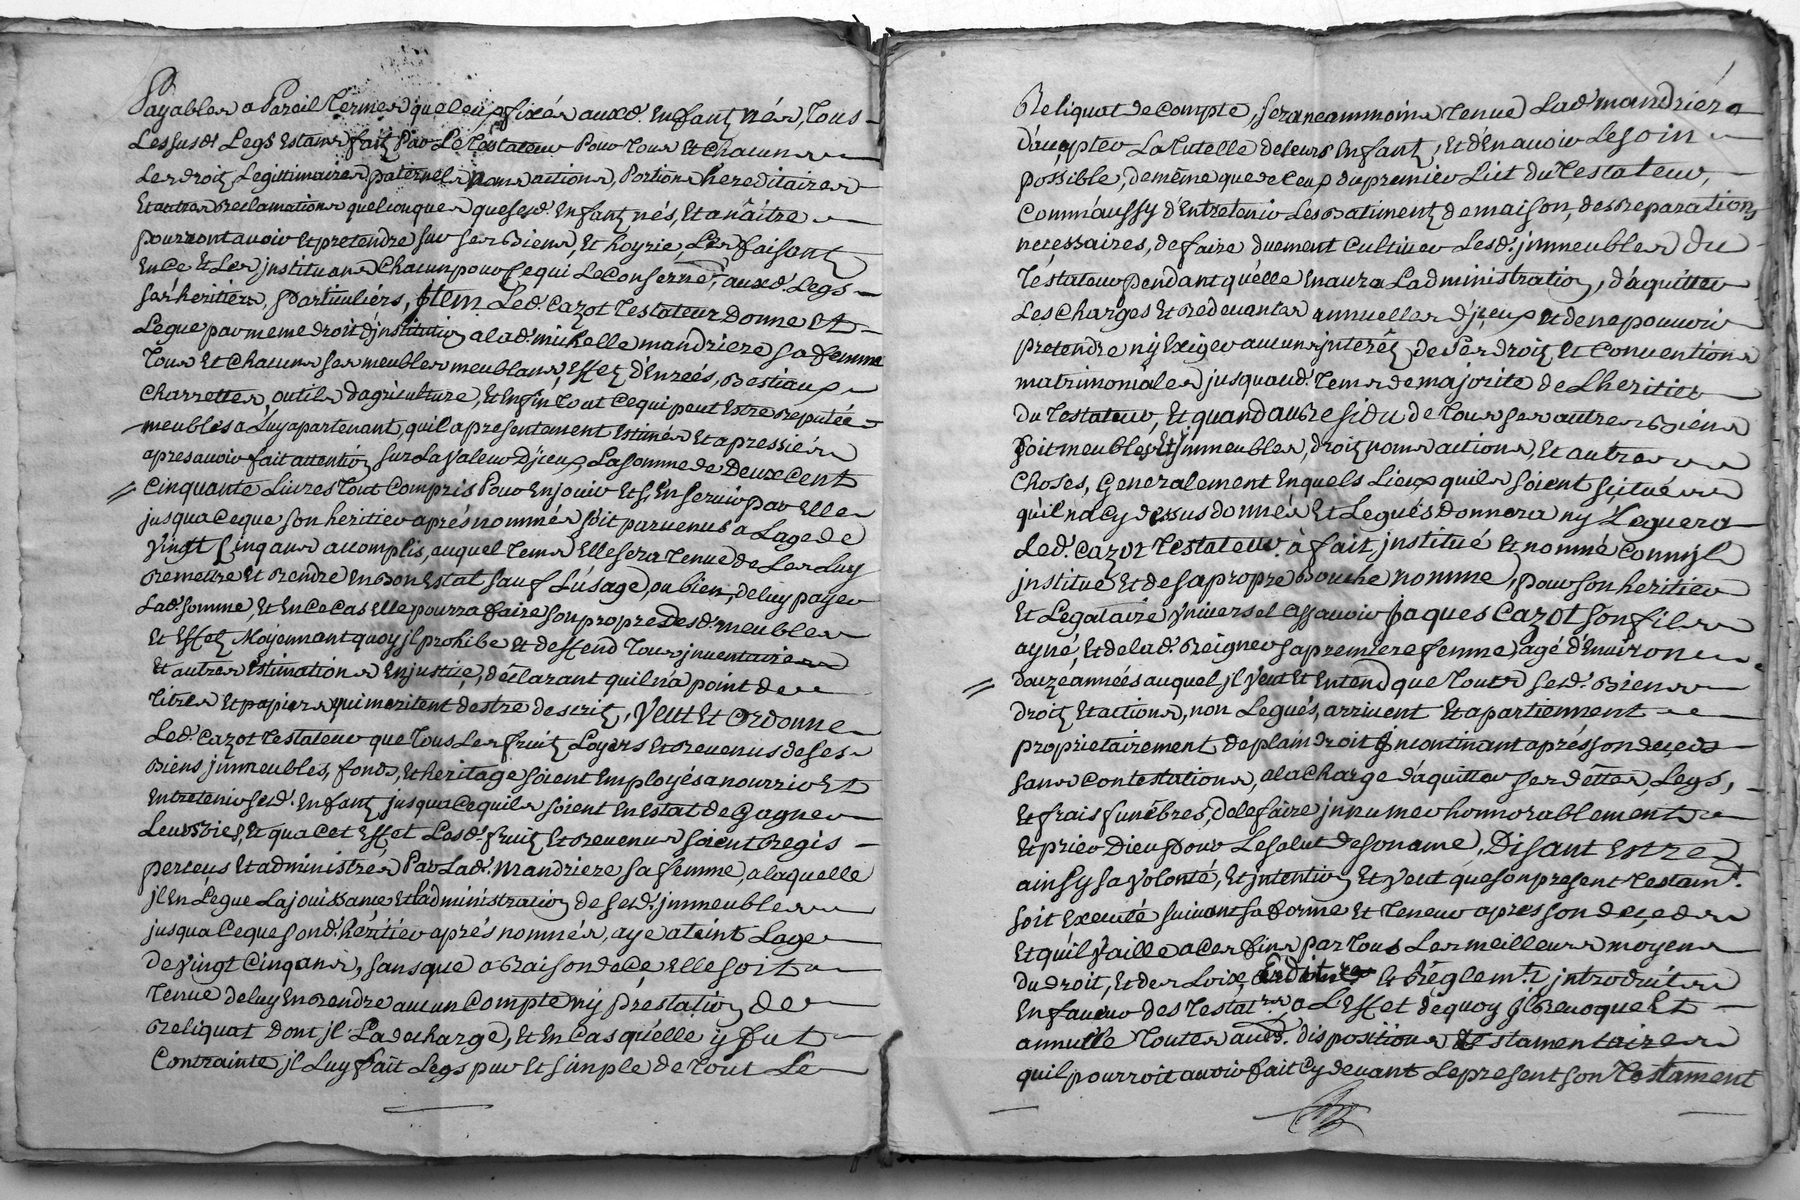 Payables a Pareil Termes que leux fixés auxd. Enfants nés, Tous
Lessusds Legs Estans faits Par Le Testateur Pour Tous Et Chacuns
Les droits Legittimaires paternels noms actions, Portions hereditaires
Et autres Reclamations quelconques que sesd. Enfants nés, Et a naître
pourront avoir Et pretendre sur ses Biens, Et hoyrie, Les faisant
En Ce Et Les jnstituans Chacun pour Ce qui Le Conserne, auxd. Legs
ses heritiers, particuliérs, jtem Led. Cazot Testateur Donne Et
Legue par meme droit d'jnstitution a lad. michelle mandriere sa femme
Tous Et Chacuns ses meubles meublans, Effets d'Enreés, Bestiaux
Charrettes, outils dagriculture, Et Enfin Tout Ce qui peut Estre reputée
meubles a Luy apartenant, quil a presentement Estimés Et apressiés
apres avoir fait attention sur La Valeur D'jceux La somme de Deux Cent
Cinquante Livres Tout Compris Pour En jouir Et s'En servir par Elle
jusqua Ce que son heritier aprés nommés soit parvenus a Lage de
Vingt Cinq ans accomplis, auquel Tems Elle sera Tenue de Les Luy
Remettre Et Rendre En Bon Estat sauf L'usage, ou bien, de luy payer
Lad. somme, Et En Ce Cas Elle pourra faire son propre Desd. meubles
Et Effets Moyennant quoy jl prohibe Et deffend Tous jnventaires
Et autres Estimations En justice, déclarant quil na point de
Titres Et papiers qui meritent destre descrits, Veut Et Ordonne
Led. Cazot Testateur que Tous Les fruits Loyers Et Revenus de ses
Biens jmmeubles, fonds, Et heritage soient Employés a nourrir Et
Entretenir sesd. Enfants jusqua Ce quils soient En Estat de Gagner
Leurs Vies, Et qua Cet Effet Lesd. fruits Et Revenus soient Regis
perceus Et administrés Par Lad. Mandriere sa femme, a laquelle
jl En Legue La jouissance Et Ladministration de sesd. jmmeubles
jusqua Ce que sond. héritier aprés nommés, aye ateint Lage
De Vingt Cinq ans, sans que a Raison de Ce Elle soit
Tenue de luy En Rendre aucun Compte ny prestation de
Reliquat dont jl La decharge, Et En Cas quélle y fut
Contrainte jl Luy fait Legs pur Et simple de Tout Le
Reliquat de Compte, sera neammoins Tenue Lad. mandriére
d'accepter La Tutelle de leurs Enfants, Et d'En avoir Le soin
possible, de même que de Ceux du premier Lict du Testateur,
Comm'aussy d'Entretenir Les Batiments de maison, des Reparations
neçessaires, de faire duement Cultiver Lesd. jmmeubles Du
Téstateur pendant qu'élle En aura Ladministration, d'aquitter
Les Charges Et Redevantes annuelles D'jceux Et de ne pouvoir
pretendre ny Exiger aucuns jnterêts de ses droits Et Conventions
matrimoniales jusqaud. Tems de majorite de L'heritier
Du Testateur, Et quand au Residu de Tous ses autres Biens
soit meubles Et jmmeubles, droits noms actions, Et autres
Choses, Generalement En quels Lieux quils soient scitués
quil na Cy dessus donnés Et Legués donnera ny Leguera
Led. Cazot Testateur a fait jnstitué Et nommé Comm'jl
jnstitue Et de sa propre Bouche nomme, pour son heritier
Et Legataire Vniversel assavoir jaques Cazot son fils
ayné, Et de lad. Reigner sa premiere femme, agé d'Environ
douze années auquel jl Veut Et Entend que Touts sesd. Biens
droits Et actions, non Legués, arrivent Et apartiennent
proprietairement de plain droit jncontinant aprés son decéds
sans Contestations, a la Charge d'aquitter ses dêttes, Legs,
Et frais funêbres, de le faire jnhumer honnorablement
Et prier Dieu pour Le salut de son ame, Disant Estre
ainsy sa Volonté, Et jntention Et Veut que son present Testamt.
soit Executé suivant sa forme Et Teneur apres son deçeds
Et quil Vaille a Ces fins par Tous Les meilleurs moyens
Du droit, Et des Loix, Et Réglemts. jntroduits
En faveur des Testatrs. a L'Effet de quoy jl Revoque Et
annulle Toutes aud. dispositions Testamentaires
quil pourroit avoir fait Cy devant Le present son Testament